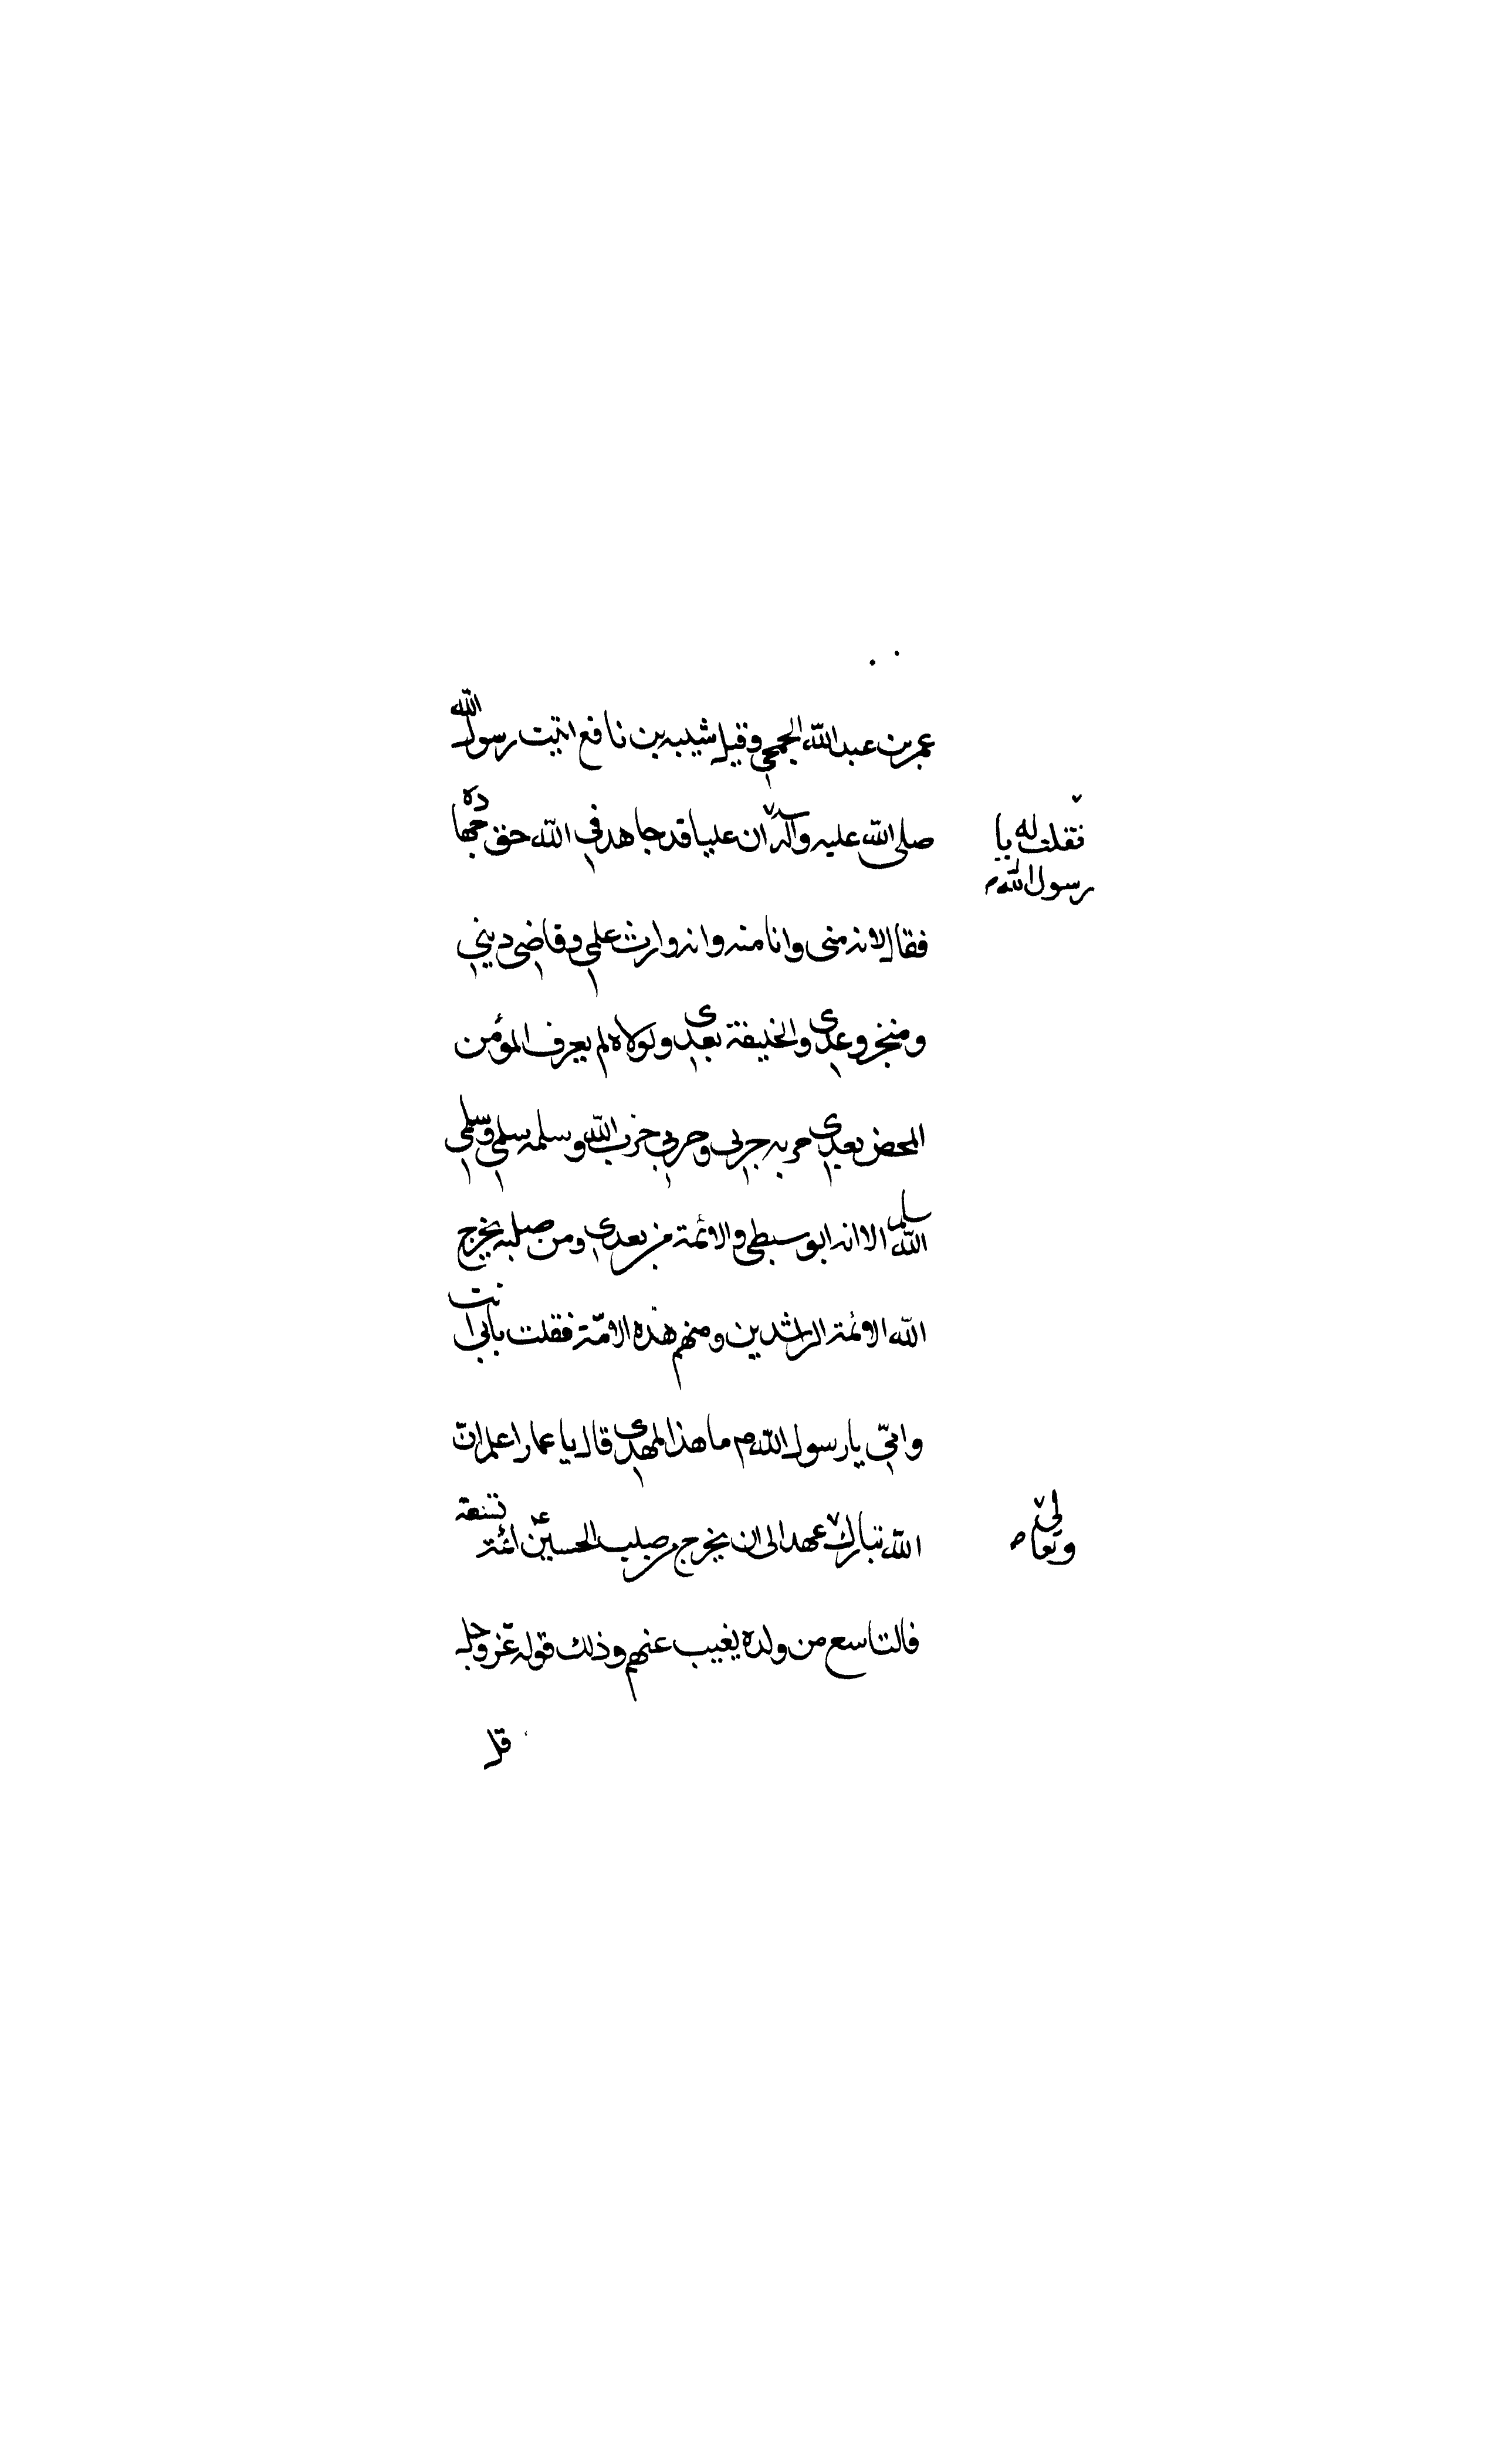 عمر بن عبد الله الجمحي وقيل شيبه بن نافع اتيت رسول الله
صلى الله عليه وآله ان عليا قد جاهد في الله حق جهاده
فقلت له يا
رسول الله
فقال لانه مني وانا منه وانه وارث علمي وقاضي ديني
ومنجز وعدي والخليفة بعدي ولولاه لم يعرف المؤمن
المحض بعدي حربه حربي وحربي حرب الله وسلمه سلمي وسلمي
سلم الله الا انه ابو سبطي والائمة من بعدي ومن صلبه يخرج
الله الائمة الراشدين ومنهم هذه الامّة فقلت بابي انت
وامّي يا رسول الله ما هذا المهدي قال يا عمار اعلم انّ
الله تبارك عهد الى ان يخرج من صلب الحسين ائمة تسعة
وتعالى
فالتاسع من ولده يغيب عنهم وذلك قوله عزّ وجل
قل